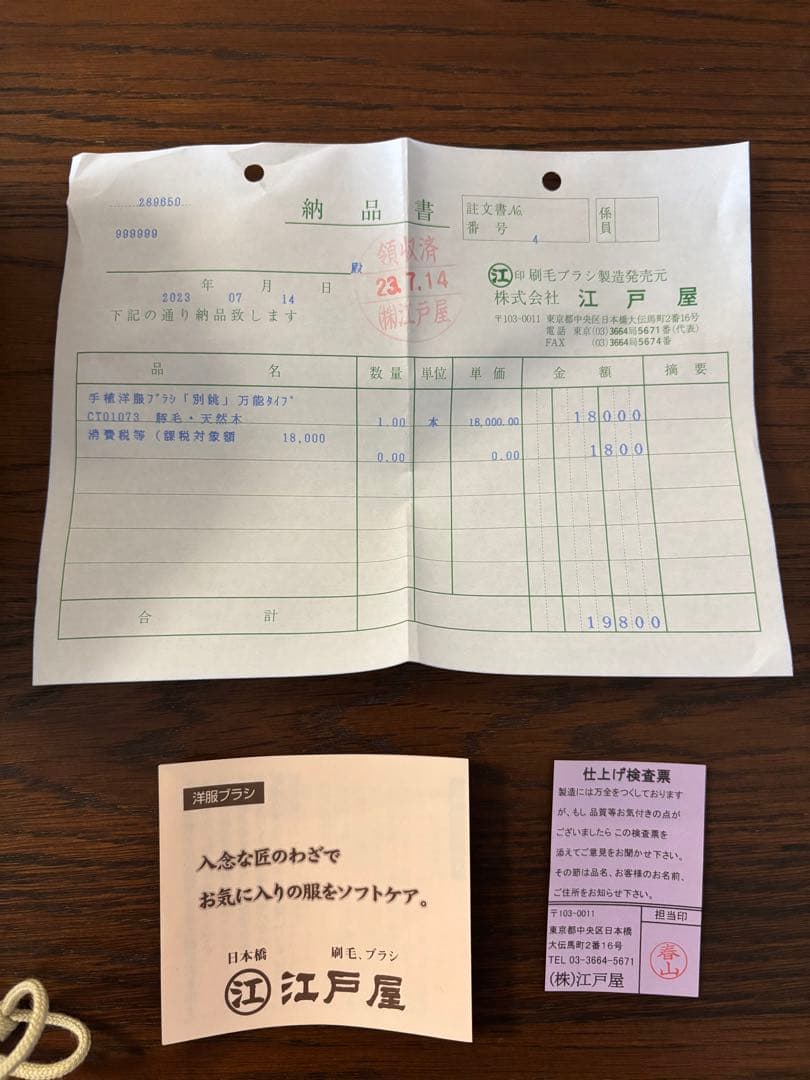 289650
納品書
註文書No.
番号
4
係員
999999
殿
領収済
23.7.14
㈱江戸屋
江印刷毛ブラシ製造発売元
株式会社 江戸屋
〒103-0011 東京都中央区日本橋大伝馬町2番16号
電話 東京(03)3664局5671番(代表)
FAX (03)3664局5674番
年 月 日
2023 07 14
下記の通り納品致します
品名 数量 単位 単価 金額 摘要
手植洋服ブラシ「別誂」万能タイプ
CT01073 豚毛・天然木 1.00 本 18,000.00 18000
消費税等(課税対象額 18,000
0.00 0.00 1800
合計 19800
洋服ブラシ
入念な匠のわざで
お気に入りの服をソフトケア。
日本橋 刷毛、ブラシ
江 江戸屋
仕上げ検査票
製造には万全をつくしております
が、もし 品質等お気付きの点が
ございましたら この検査票を
添えてご意見をお聞かせ下さい。
その節は品名、お客様のお名前、
ご住所をお知らせ下さい。
〒103-0011
東京都中央区日本橋
大伝馬町2番16号
TEL 03-3664-5671
(株)江戸屋
担当印
春山